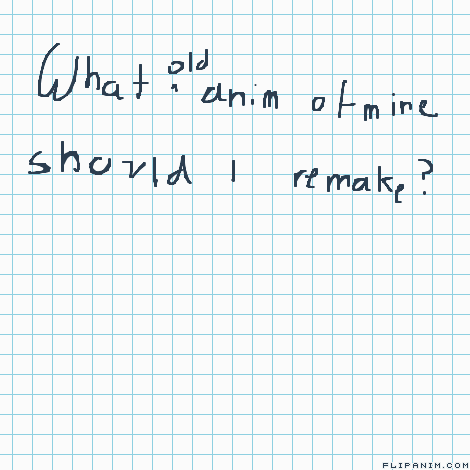 What old anim of mine
should I remake?
FLIPANIM.COM